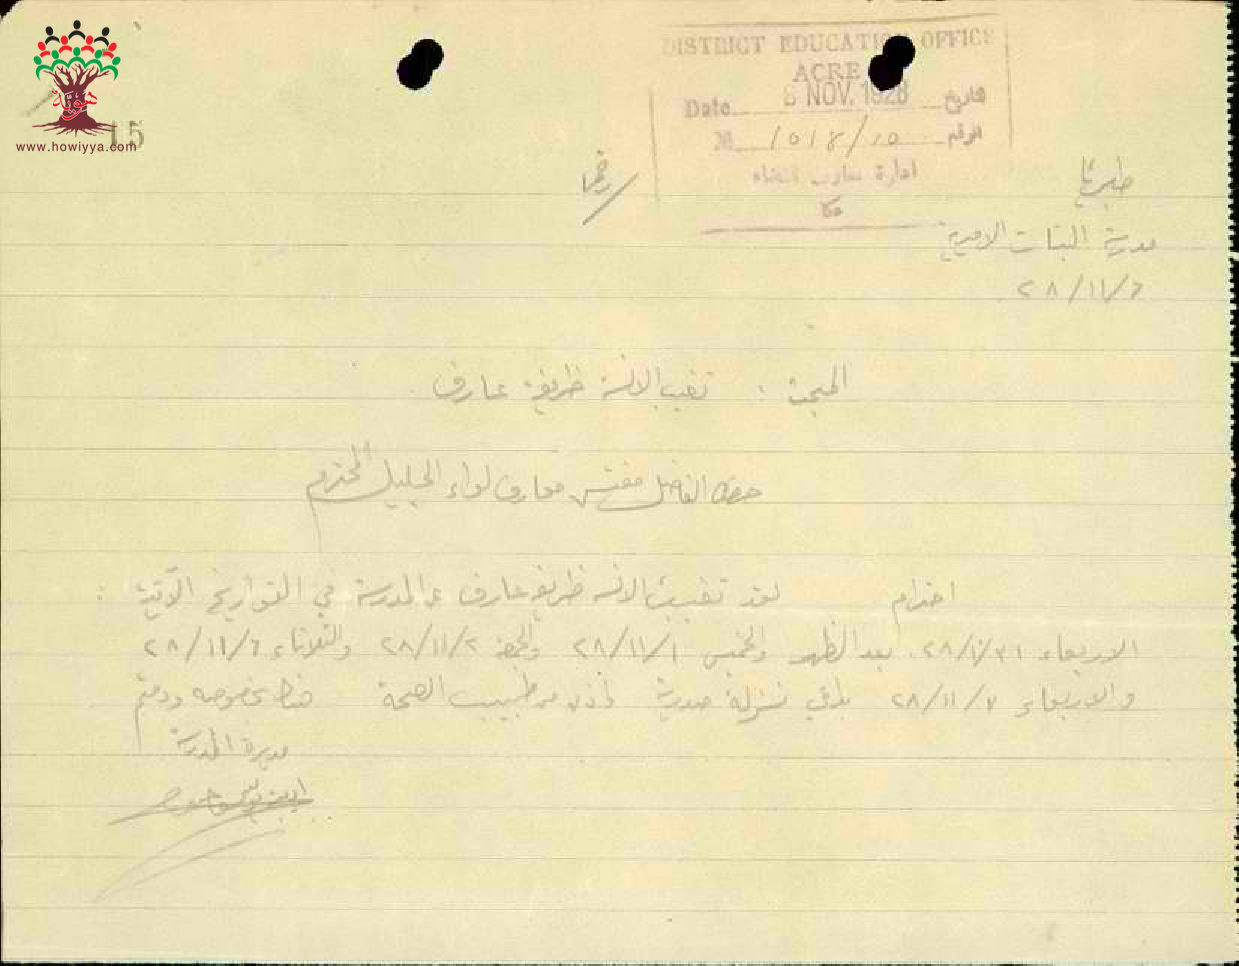 هوية
www.howiyya.com
15
DISTRICT EDUCATION OFFICE
ACRE
Date 8 NOV. 1928 تاريخ
№ 1018/10 الرقم
ادارة معارف قضاء
عكا
طبريا
مدرسة البنات الاميرية
٢٨/١١/٦
المبحث : تغيب الانسة ظريفة عارف
حضرة الفاضل مفتش معارف لواء الجليل المحترم
احترام لقد تغيبت الانسة ظريفة عارف عن المدرسة في التواريخ الآتية :
الاربعاء ٢٨/١٠/٣١ بعد الظهر والخميس ٢٨/١١/١ والجمعة ٢٨/١١/٢ والثلاثاء ٢٨/١١/٦
والاربعاء ٢٨/١١/٧ بداعي نزلة صدرية طبيب الصحة ودمتم
مديرة المدرسة